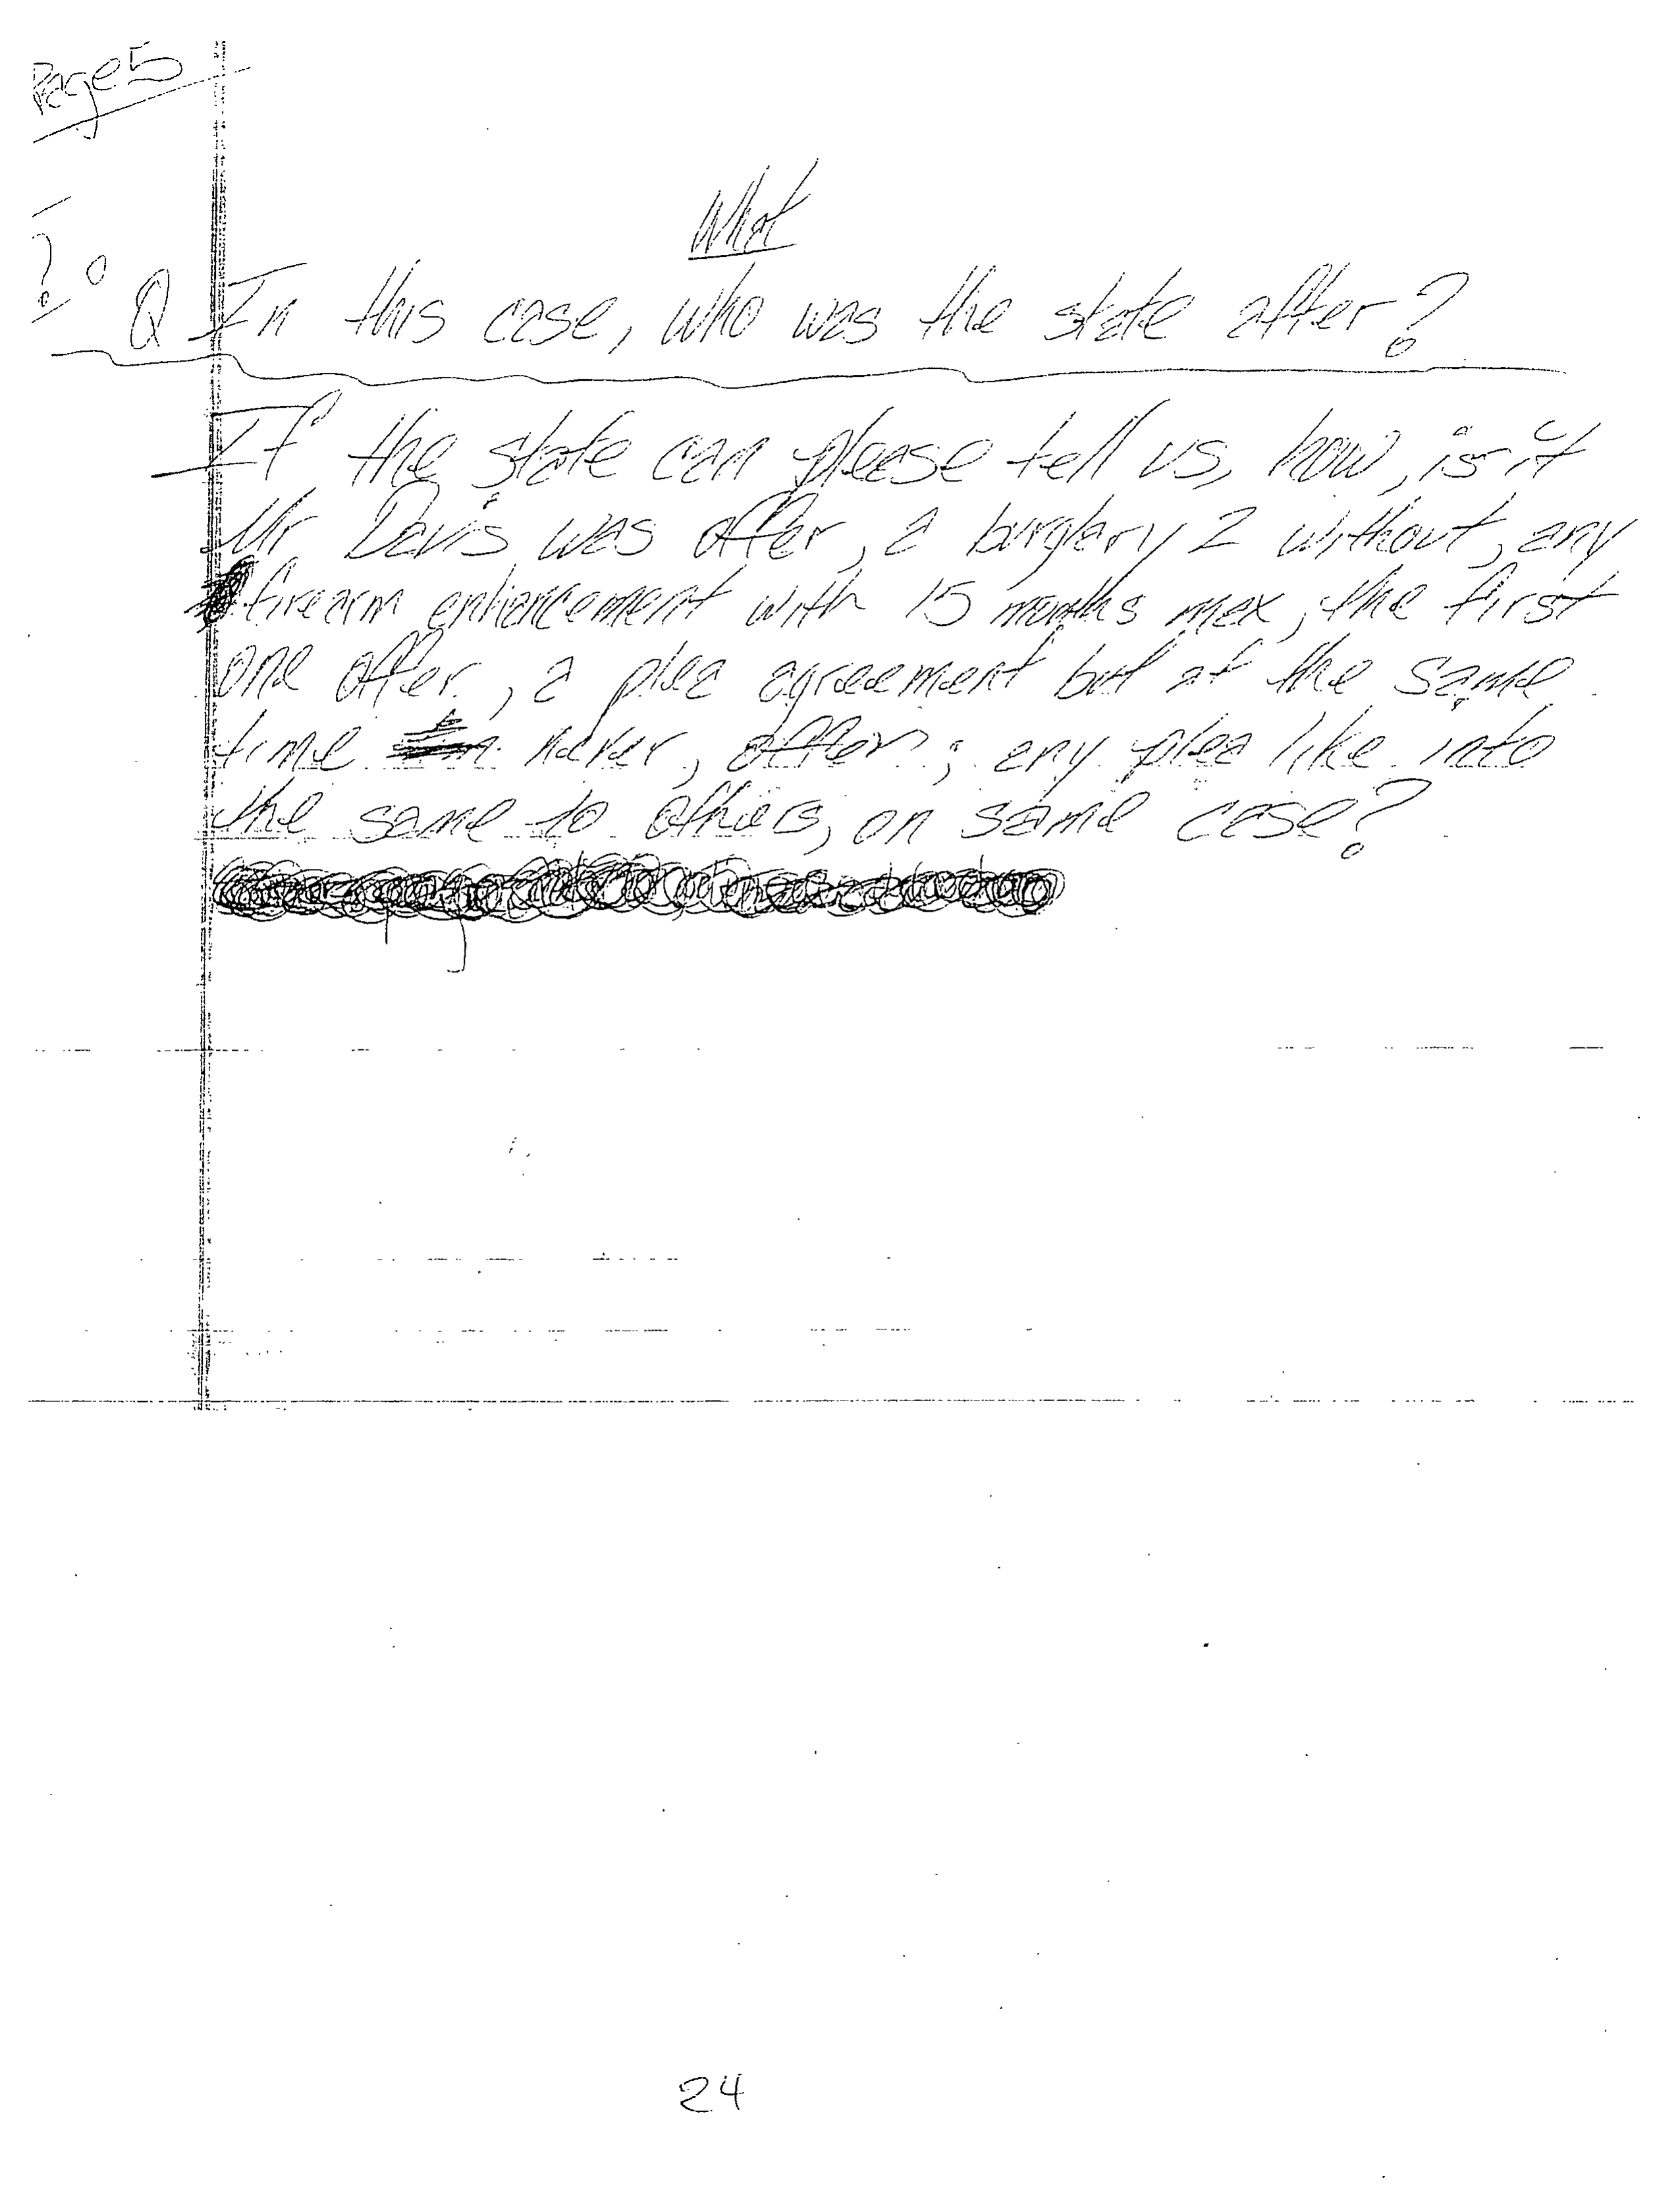 Page 5
What
? Q In this case, who was the state after?
If the state can please tell us, how, is it
Mr Davis was offer, a burglary 2 without, any
firearm enhancement with 15 months max, the first
one offer, a plea agreement but at the same
time never, offer; any plea like into
the same to others, on same case?
24